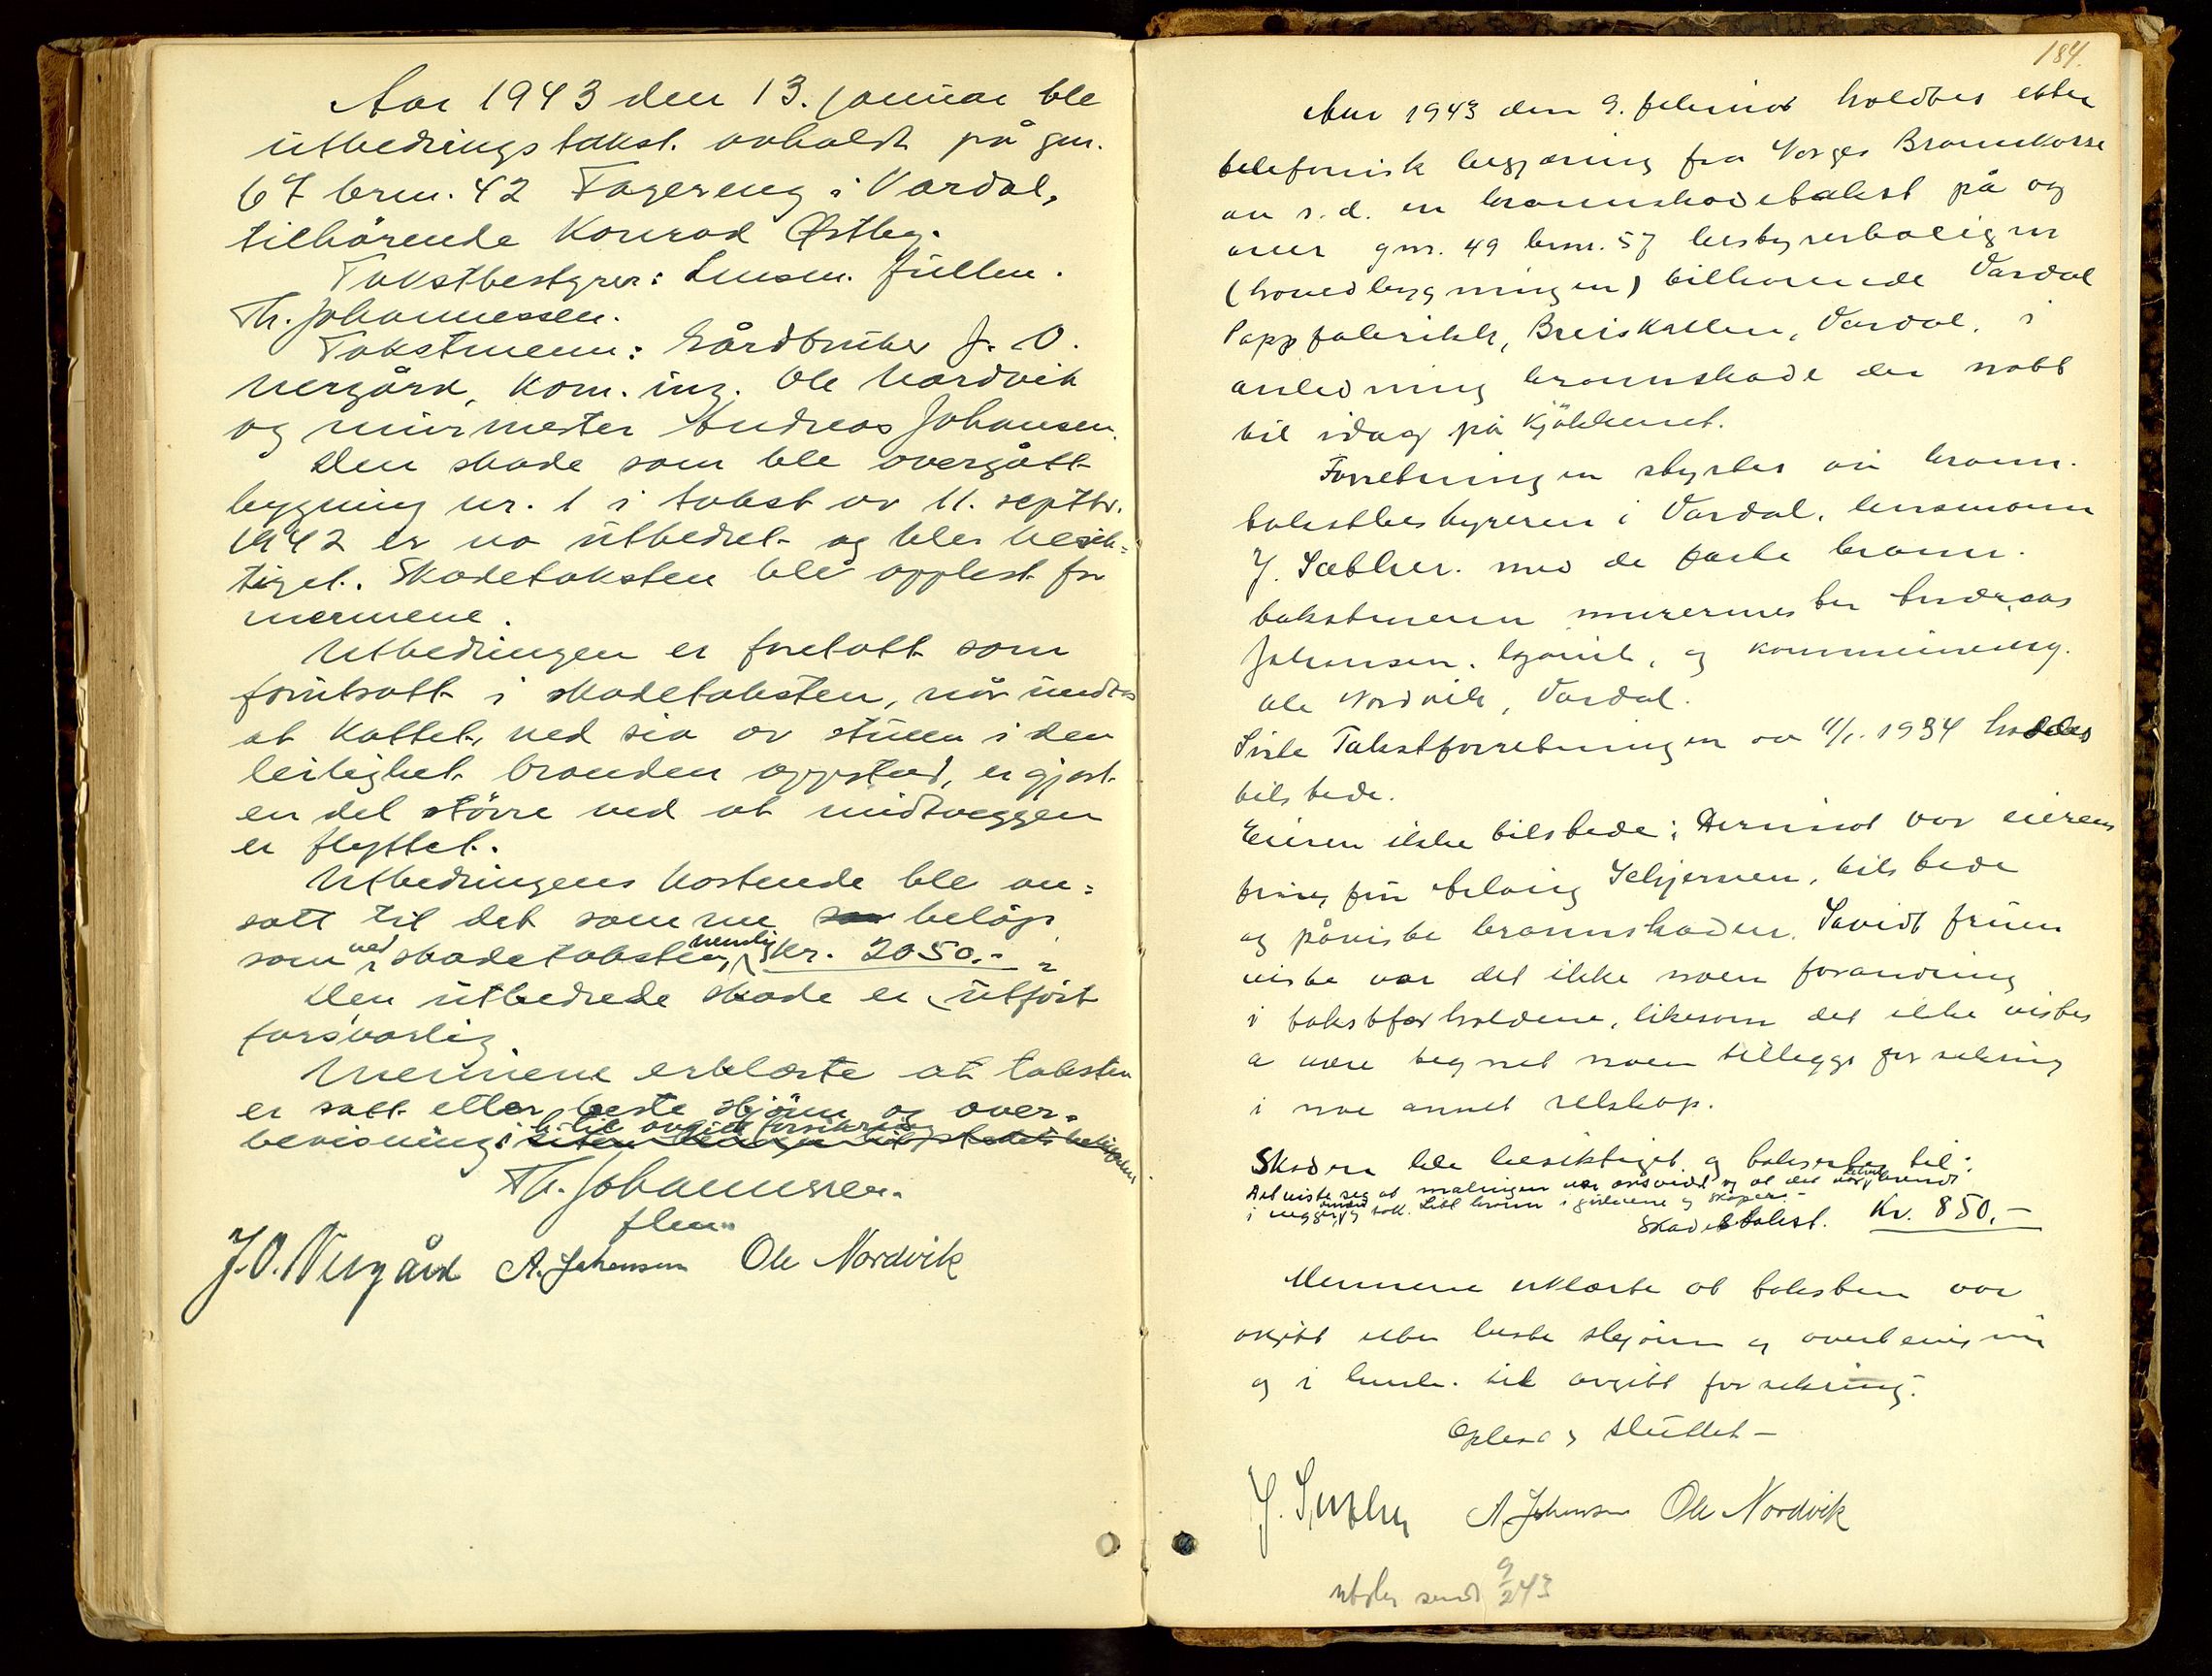 Aar 1943 den 13. januar ble
utbedringstakst. avholdt på gnr.
67 brn. 42 Fagereng i Vardal,
tilhørende Konrad Østby.
Takstbestyrer: Lensm. fullm.
Th. Johannessen.
Takstmenn: Gårdbruker J. O.
Nergård, Kom. ing. Ole Nordvik
og murmester Andreas Johansen.
Den skade som ble overgått
bygning nr. 1 i takst av 11. septbr.
1942 er na utbedret og blev besik=
tiget. Skadetaksten blev opplest for
mennene.
Utbedringen er foretatt som
forutsatt i skadetaksten, når undtas
at kottet, ved sia av stuen i den
leilighet branden oppstod, er gjort
en del større ved at midtveggen
er flyttet.
Utbedringens kostende ble an=
satt til det samme beløp
som ved skadetaksten, nemlig kr. 2050.-
Den utbedrede skade er utført
forsvarlig.
Mennene erklærte at taksten
er satt etter beste skjønn og over=
bevisning i h. til avgitt forsikring
Th. Johannessen.
flm.
J.O. Nergård A. Johansen Ole Nordvik
184.
Aar 1943 den 9. februar holdtes etter
telefonisk begjæring fra Norges Brannkasse
av s.d. en brannskadetakst på og
over gnr. 49 brnr. 57 bestyrerboligen
(hovedbygningen) tilhørende Vardal
Pappfabrikk, Breiskallen, Vardal, i
anledning brannskade der nått
til idag på kjøkkenet.
Forretningen styrtes av brann-
takstbestyreren i Vardal, lensmann
J. Sæther. med de faste brann-
takstmenn murermester Andreas
Johansen, Gjøvik, og kommuneing.
Ole Nordvik, Vardal.
Siste Takstforretningen av 11/1. 1934 haddes
tilstede.
Eieren ikke tilstede; derimot var eierens
frue, fru Schjernen, tilstede
og påviste brannskaden. Såvidt fruen
visste var det ikke noen forandring
i takstforholdene, likesom det ikke vistes
a være tegnet noen tilleggsforsikring
i noe annet selskap.
Skaden ble besiktiget og taksertes til:
Det viste seg at malingen var avsvidd og at det var brendt
i vegger og tak. Litt brann i gerictene og skaper.-
Skadetakst. Kr. 850,-
Mennene erklærte at taksten var
avgitt etter beste skjønn og overbevisning
og i henh. til avgitt forsikring.
Oplest og sluttet -
J. Sæther A. Johansen Ole Nordvik
utskr. sendt 9/2 43